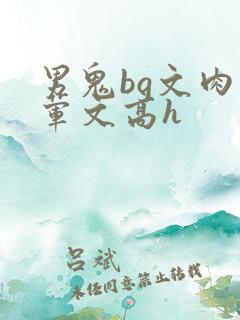 男鬼bg文肉
军文高h
吕斌
未经同意禁止转载